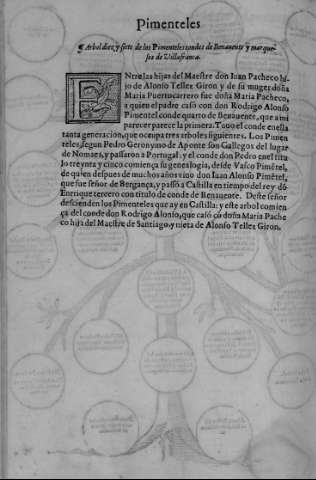 Pimenteles
¶ Arbol diez y siete de los Pimenteles condes de Benauente y marque-
ses de Villafranca.
ENtre las hijas del Maestre don Iuan Pacheco hi-
jo de Alonso Tellez Giron y de su muger doña
Maria Puertocarrero fue doña Maria Pacheco,
a quien el padre casò con don Rodrigo Alonso
Pimentel conde quarto de Benauente, que a mi
parecer parece la primera. Tuuo el conde en ella
tanta generacion, que ocupa tres arboles siguientes. Los Pimen
teles, segun Pedro Geronymo de Aponte son Gallegos del lugar
de Nomaes, y passaron a Portugal. y el conde don Pedro en el titu
lo treynta y cinco comiença su genealogia, desde Vasco Pimẽtel,
de quien despues de muchos años vino don Iuan Alonso Pimẽtel,
que fue señor de Bergança, y passò a Castilla en tiempo del rey dõ
Enrique tercero con titulo de conde de Benauente. Deste señor
descienden los Pimenteles que ay en Castilla: y este arbol comien
ça del conde don Rodrigo Alonso, que casò cõ doña Maria Pache
co hija del Maestre de Santiago, y nieta de Alonso Tellez Giron.